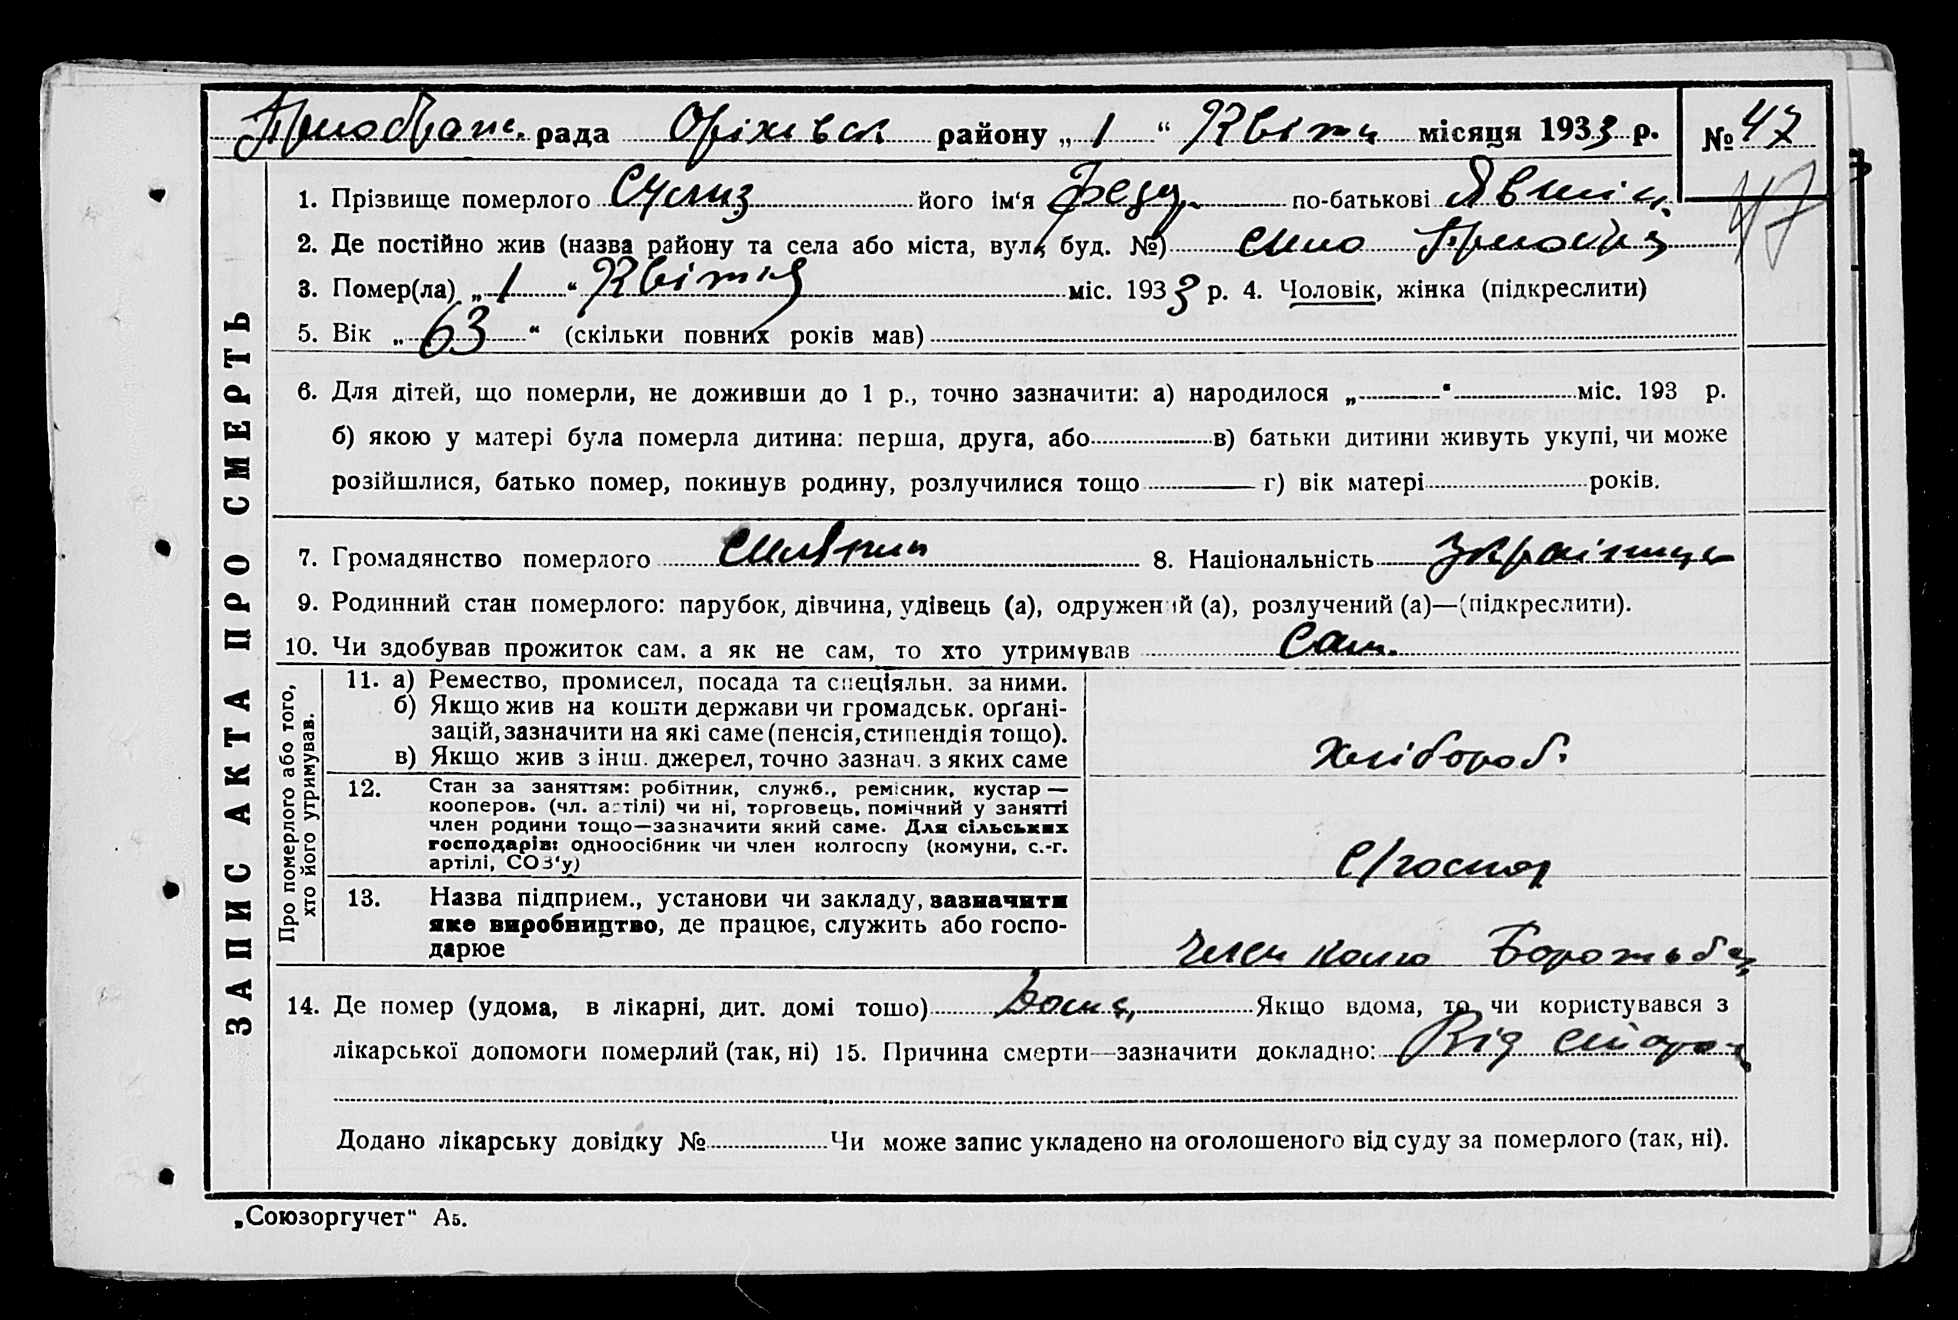 Преображе. рада Оріхівськ району „1“ Квітня місяця 1933 р. № 47
47
1. Прізвище померлого його ім'я Федір по-батькові
2. Де постійно жив (назва району та села або міста, вул., буд. №) село
3. Помер(ла) „1“ Квітня міс. 1933 р. 4. Чоловік, жінка (підкреслити)
5. Вік „63“ (скільки повних років мав)
6. Для дітей, що померли, не доживши до 1 р., точно зазначити: а) народилося „ “ міс. 193 р.
б) якою у матері була померла дитина: перша, друга, або в) батьки дитини живуть укупі, чи може
розійшлися, батько помер, покинув родину, розлучилися тощо г) вік матері років.
7. Громадянство померлого 8. Національність Українець
9. Родинний стан померлого: парубок, дівчина, удівець (а), одружений (а), розлучений (а)—(підкреслити).
10. Чи здобував прожиток сам, а як не сам, то хто утримував Сам.
ЗАПИС АКТА ПРО СМЕРТЬ
Про померлого або того,
хто його утримував.
11. а) Ремество, промисел, посада та спеціяльн. за ними.
б) Якщо жив на кошти держави чи громадськ. орґані-
зацій, зазначити на які саме (пенсія, стипендія тощо).
в) Якщо жив з інш. джерел, точно зазнач. з яких саме
Хлібороб.
12. Стан за заняттям: робітник, служб., ремісник, кустар—
кооперов. (чл. артілі) чи ні, торговець, помічний у занятті
член родини тощо—зазначити який саме. Для сільських
господарів: одноосібник чи член колгоспу (комуни, с.-г.
артілі, СОЗ'у)
С/господ
13. Назва підприєм., установи чи закладу, зазначити
яке виробництво, де працює, служить або госпо-
дарює
Член колг Боротьба
14. Де помер (удома, в лікарні, дит. домі тошо) Дома, Якщо вдома, то чи користувався з
лікарської допомоги померлий (так, ні) 15. Причина смерти—зазначити докладно: Від
Додано лікарську довідку № Чи може запис укладено на оголошеного від суду за померлого (так, ні).
„Союзоргучет" Аб.